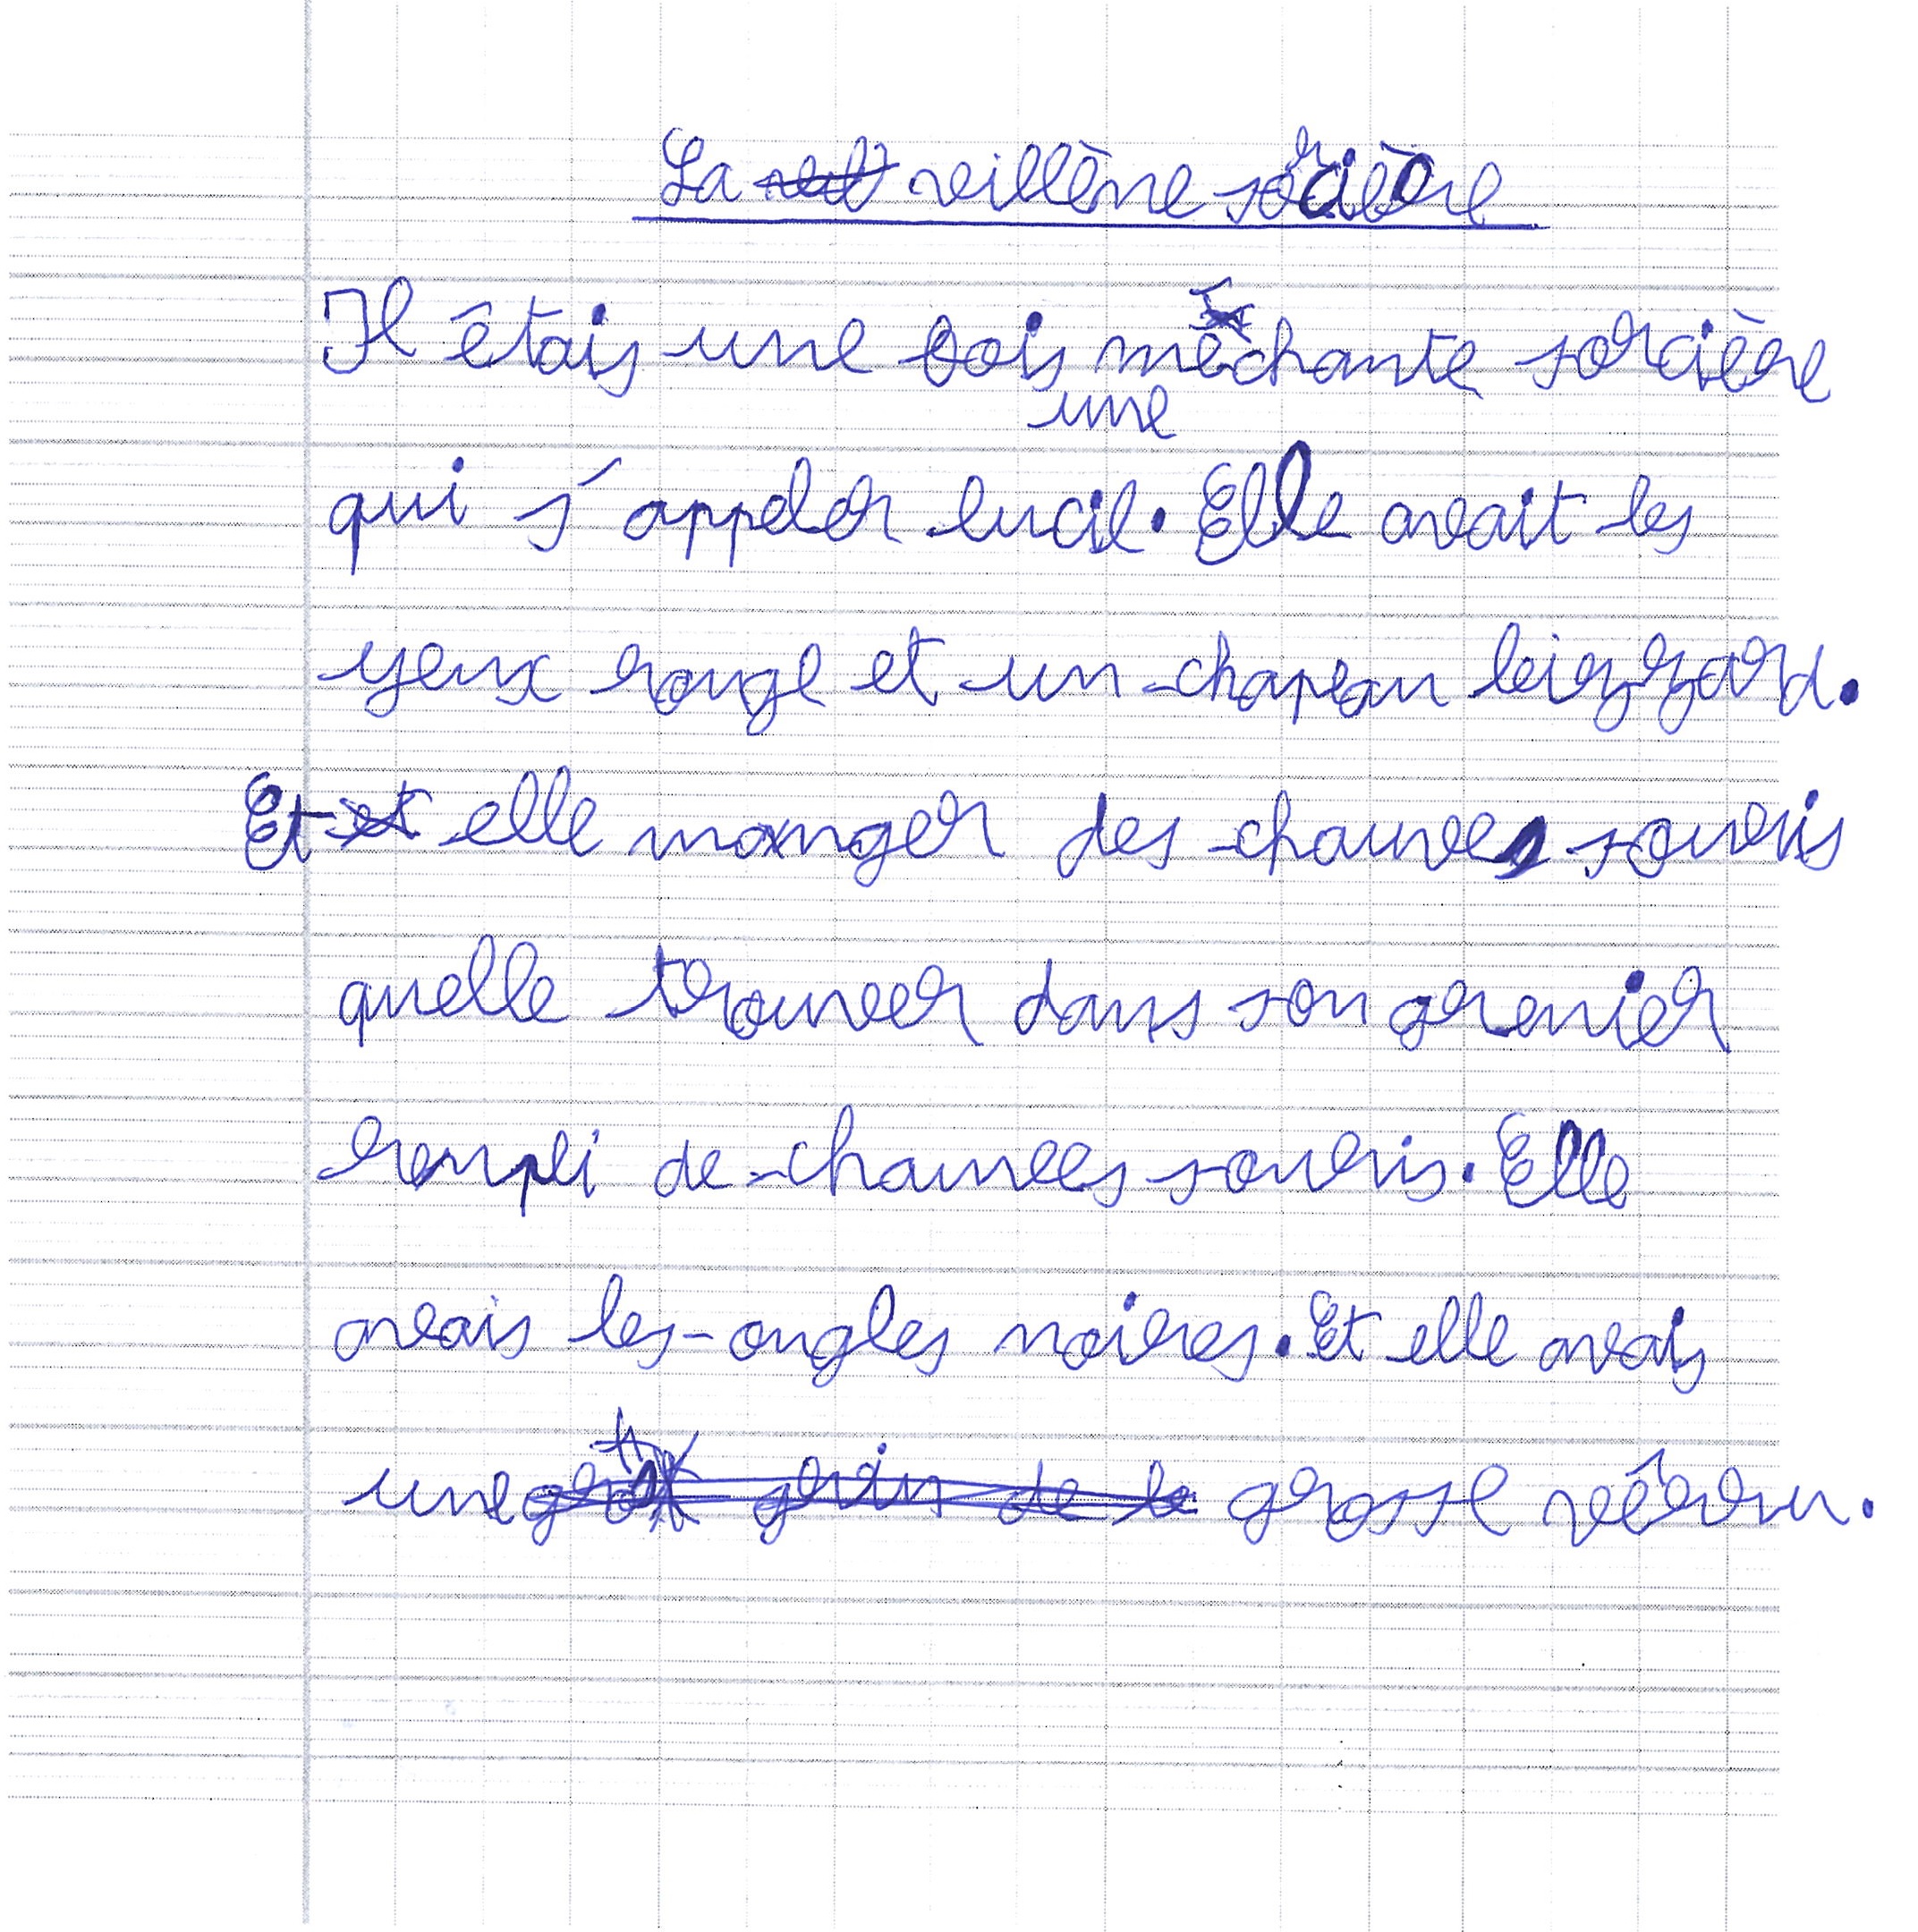 La veillène sorcière
Il êtais une fois mèchante sorcière
une
qui s'appeler lucil. Elle avait les
yeux rouge et un chapeau bizzard.
Et elle manger des chauves souris
quelle trouver dans son grenier
rempli de chauves souris. Elle
avais les ongles noires. Et elle avais
une grosse vêerru.